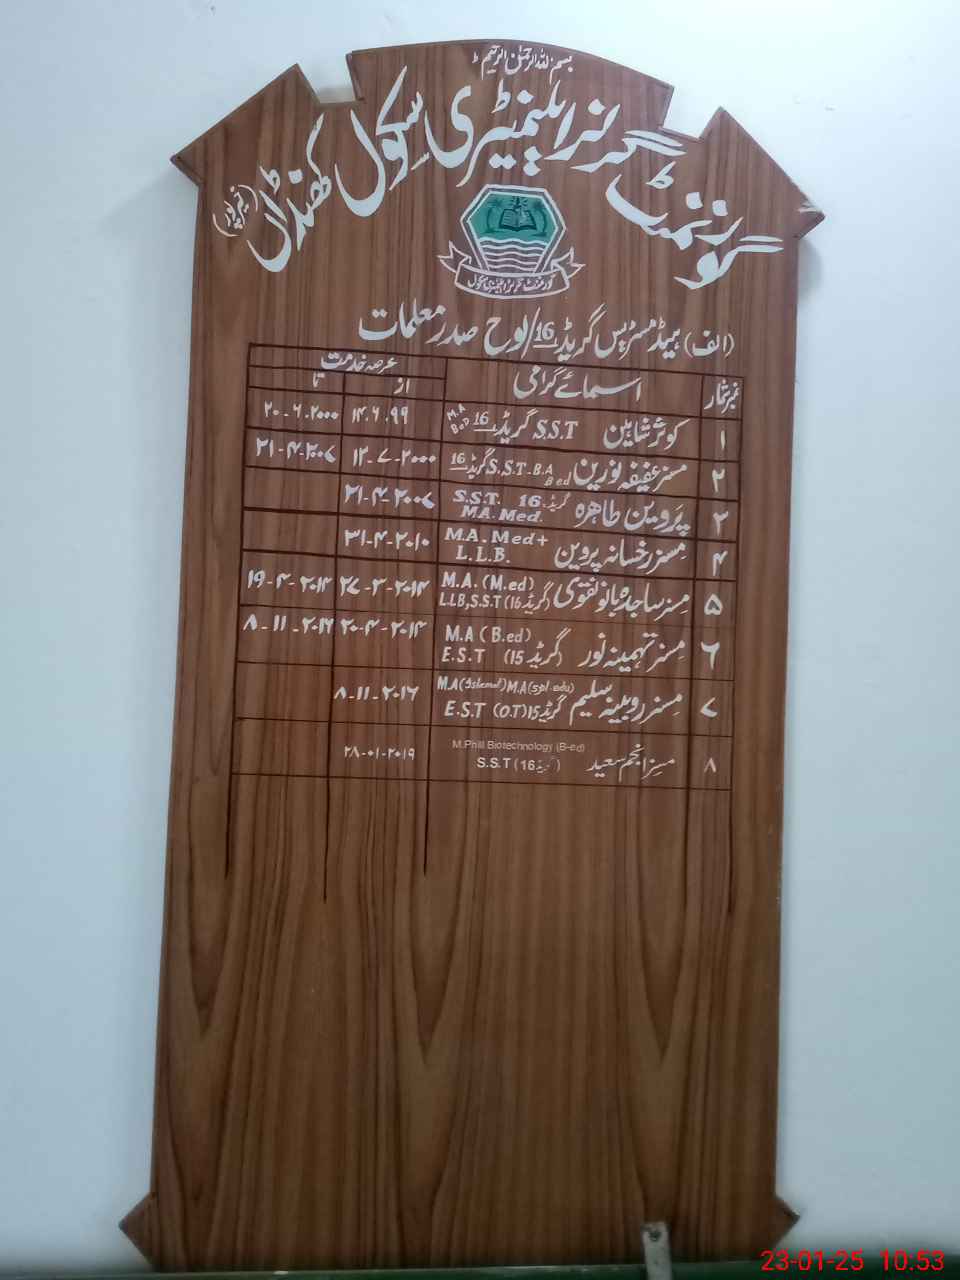 بسم اللہ الرحمٰن الرحیم
گورنمنٹ گرلز ایلیمنٹری سکول کھنڈاں
گورنمنٹ گرلز ایلیمنٹری سکول
(الف) ہیڈ مسٹریس گریڈ 16/لوح صدر معلمات
نمبر شمار اسمائے گرامی عرصہ خدمت
از تا
۱ کوثر شاہین S.S.T گریڈ 16 M.A B.eD ۱۴.۶.۹۹ ۲۰-۶-۲۰۰۰
۲ مسز عفیفہ نورین S.S.T-B.A B.ed گریڈ 16 ۱۲-۷-۲۰۰۰ ۲۱-۴-۲۰۰۷
۳ پروین طاہرہ گریڈ 16 S.S.T. MA.Med. ۲۱-۴-۲۰۰۷
۴ مسز رخسانہ پروین M.A.Med+ L.L.B. ۳۱-۴-۲۰۱۰
۵ مسز ساجدہ بانو نقوی M.A.(M.ed) L.LB,S.S.T (گریڈ 16) ۲۷-۳-۲۰۱۴ ۱۹-۴-۲۰۱۴
۶ مسز تہمینہ نور M.A (B.ed) E.S.T (گریڈ 15) ۲۰-۴-۲۰۱۴ ۸-۱۱-۲۰۱۶
۷ مسز روبینہ سلیم M.A(Islamat) M.A(spl.edu) E.S.T (O.T) گریڈ 15 ۸-۱۱-۲۰۱۶
۸ مسز انجم سعید M.Phill Biotechnology (B-ed) S.S.T (گریڈ 16) ۲۸-۰۱-۲۰۱۹
23-01-25 10:53